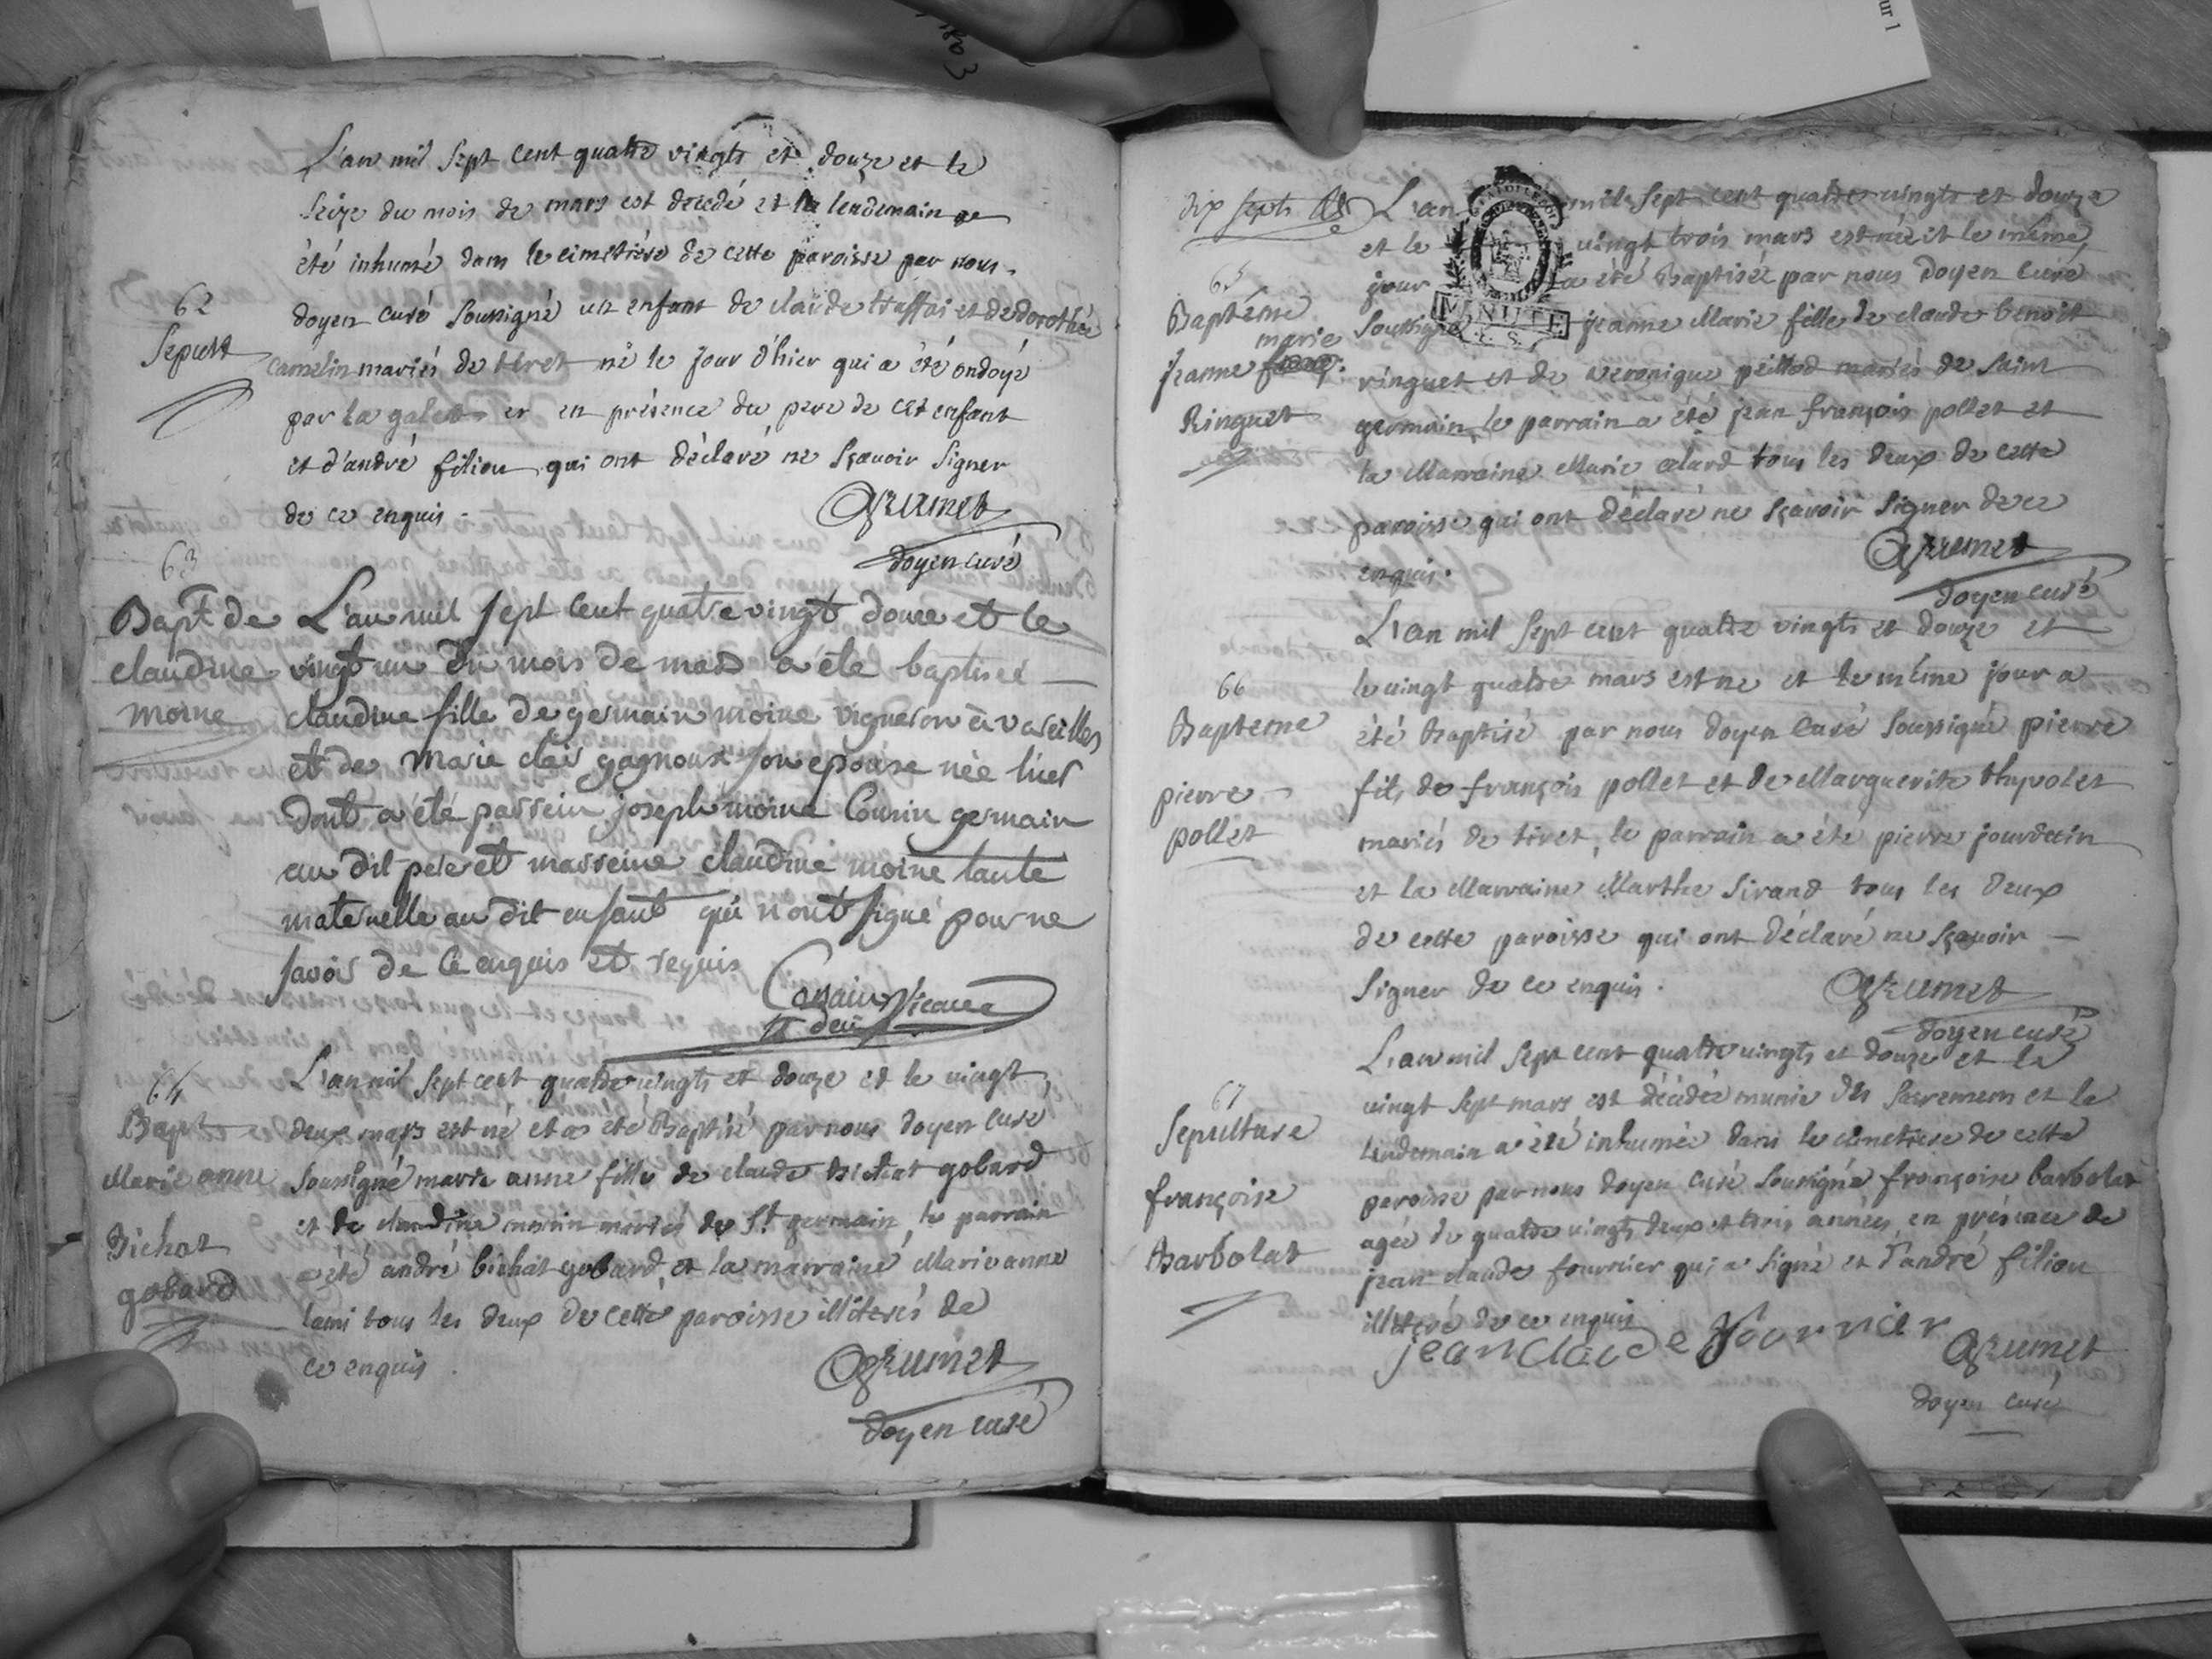 1803
ur 1
L'an mil sept cent quatre vingts et douze et le
seize du mois de mars est décédé et le lendemain a
été inhumé dans le cimetière de cette paroisse par nous
62
doyen curé soussigné un enfant de claude traffai et de dorothée
Sepult
camelin mariés de tiret né le jour d'hier qui a été ondoyé
par la galett et en présence du pere de cet enfant
et d'andré filion qui ont déclaré ne sçavoir signer
de ce enquis.
Grumet
doyen curé
63
Bapt de
claudine
moine
L'an mil sept cent quatre vingt douze et le
vingt un du mois de mars a été baptiseé
claudine fille de germain moine vigneron à vareilles
et de marie clair gagnoux son epouse née hier
dont a été parrein joseph moine Cousin germain
au dit pere et marreine claudine moine tante
maternelle au dit enfant qui n'ont signé pour ne
savoir de ce enquis et requis
vicaire
64
Bapt
Marie anne
Bichat
gobard
L'an mil sept cent quatre vingts et douze et le vingt
deux mars est né et a été Baptisé par nous doyen curé
soussigné marie anne fille de claude bichat gobard
et de claudine monin mariés de St germain le parrain
a été andré bichat gobard et la marraine Marie anne
lami tous les deux de cette paroisse illiterés de
ce enquis.
Grumet
doyen curé
dix septs
65
Baptême
marie
jeanne
Ringuet
L'an mil sept cent quatre vingts et douze
et le vingt trois mars est née et le même
jour a été Baptisée par nous doyen curé
MINUTE
soussigné jeanne Marie fille de claude benoit
ringuet et de veronique peillod mariés de saint
germain, le parrain a été jean françois pollet et
la Marraine Marie alard tous les deux de cette
paroisse qui ont déclaré ne sçavoir signer de ce
enquis.
Grumet
doyen curé
66
Bapteme
pierre
pollet
L'an mil sept cent quatre vingts et douze et
le vingt quatre mars est né et le même jour a
été Baptisé par nous doyen curé soussigné pierre
fils de françois pollet et de Marguerite thevolet
mariés de tiret, le parrain a été pierre jourdain
et la Marraine Marthe sirand tous les deux
de cette paroisse qui ont déclaré ne sçavoir
signer de ce enquis.
Grumet
doyen curé
67
Sepulture
françoise
Barbolat
L'an mil sept cent quatre vingts et douze et le
vingt sept mars est décédée munie des sacremens et le
lendemain a été inhumée dans le cimetiere de cette
paroisse par nous doyen curé soussigné françoise barbolat
agée de quatre vingts deux et trois années en présence de
jean claude fournier qui a signé et d'andré filion
illiteré de ce enquis
jean claude fournier
Grumet
doyen curé